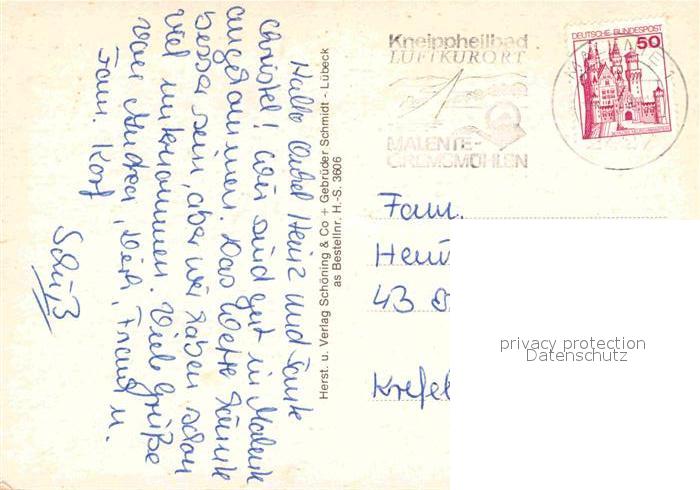 Hallo Onkel Heinz und Tante
Christel! Wir sind gut in Malente
angekommen. Das Wetter könnte
besser sein, aber wir haben schon
viel unternommen. Viele Grüße
von Andrea, Dirk, Frank u.
Fam. Korf
Herst. u. Verlag Schöning & Co + Gebrüder Schmidt - Lübeck
as Bestellnr. H.-S. 3606
Kneippheilbad
LUFTKURORT
MALENTE-
GREMSMÜHLEN
DEUTSCHE BUNDESPOST
50
Fam.
43
Krefel
privacy protection
Datenschutz